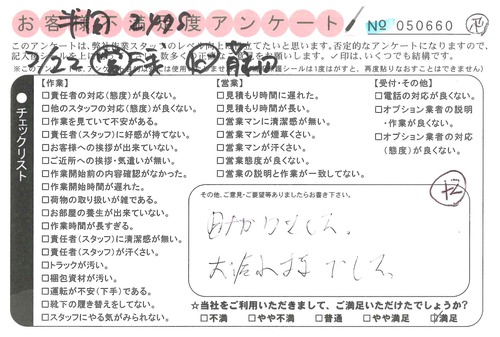 お客様不満足度アンケート
№ 050660
このアンケートは、弊社作業スタッフのレベル向上に役立てたいと思います。否定的なアンケートになりますので、
チェックリスト
【作業】
□責任者の対応(態度)が良くない。
□他のスタッフの対応(態度)が良くない。
□作業を見ていて不安がある。
□責任者(スタッフ)に好感が持てない。
□お客様への挨拶が出来ていない。
□ご近所への挨拶・気遣いが無い。
□作業開始前の内容確認がなかった。
□作業開始時間が遅れた。
□荷物の取り扱いが雑である。
□お部屋の養生が出来ていない。
□作業時間が長すぎる。
□責任者(スタッフ)に清潔感が無い。
□責任者(スタッフ)が汗くさい。
□トラックが汚い。
□梱包資材が汚い。
□運転が不安(下手)である。
□靴下の履き替えをしてない。
□スタッフにやる気がみられない。
【営業】
□見積もり時間に遅れた。
□見積もり時間が長い。
□営業マンに清潔感が無い。
□営業マンが煙草くさい。
□営業マンが汗くさい。
□営業態度が良くない。
□営業の説明と作業が一致してない。
【受付・その他】
□電話の対応が良くない。
□オプション業者の説明
・作業が良くない。
□オプション業者の対応
(態度)が良くない。
その他、ご意見・ご要望等ありましたらお書き下さい。
助かりました。
☆当社をご利用いただきまして、ご満足いただけたでしょうか?
□不満 □やや不満 □普通 □やや満足 ☑満足